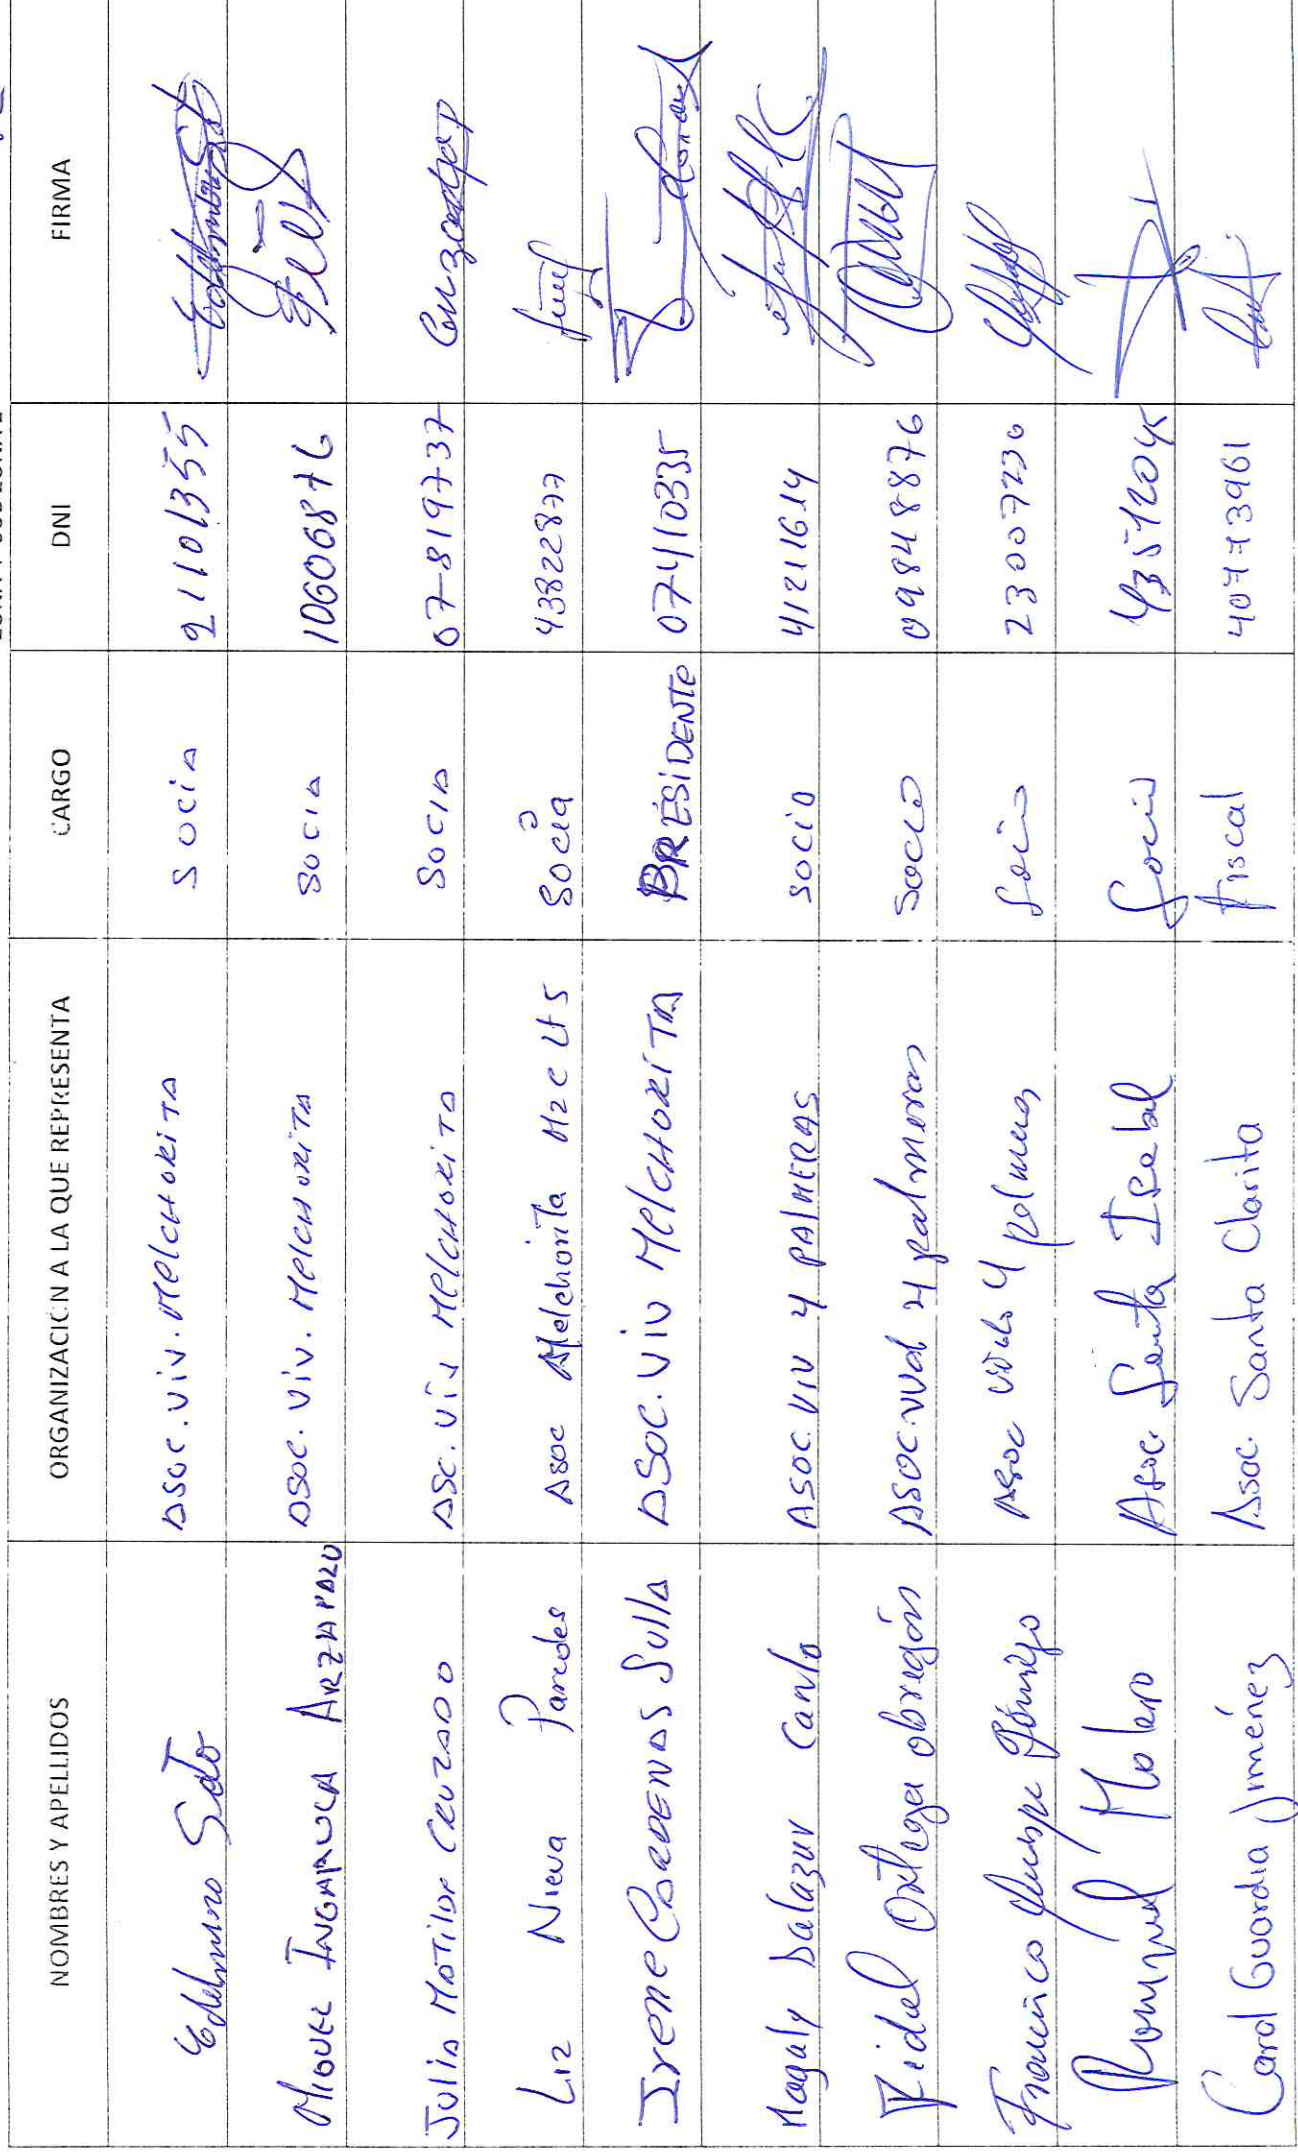 NOMBRES Y APELLIDOS ORGANIZACIÓN A LA QUE REPRESENTA CARGO DNI FIRMA
Edelmino Soto Asoc. Viv. Melchorita Socia 21101355
Miguel Ingaruca Arzapalo Asoc. Viv. Melchorita Socia 10606876
Julia Motilor Cruzado Asc. Viv Melchorita Socia 07819737
Liz Nieva Paredes Asoc Melchorita Mz C Lt 5 Socia 43822877
Irene Cardenas Sulla Asoc. Viv Melchorita PRESIDENTE 07410335
Magaly Salazar Asoc. Viv 4 Palmeras Socio 41211614
Fidel Ortega Obregón Asoc. 4 palmeras Socio 09848876
Francisco Quispe Asoc 4 Socio 23007230
Molero Asoc. Santa Isabel Socio
Carol Guardia Jiménez Asoc. Santa Clarita Fiscal 40773961